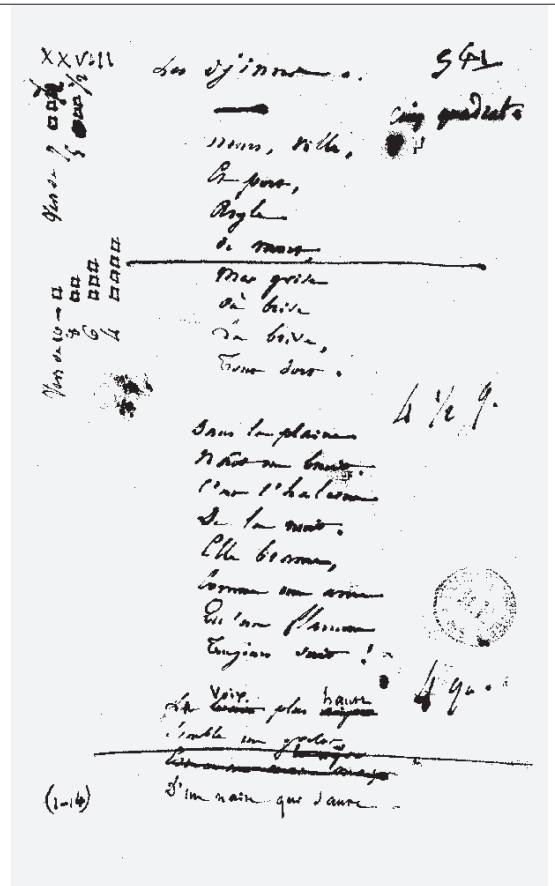 XXVIII
Les Djinns.
541
cinq quadrats
Murs, ville,
Et port,
Asyle
De mort,
Mer grise
Où brise
La brise,
Tout dort.
4 1/2 q.
Dans la plaine
Naît un bruit.
C'est l'haleine
De la nuit.
Elle brame,
Comme une âme
Qu'une flamme
Toujours suit !
4 qu.
La voix plus haute
Semble un grelot
D'un nain qui saute
(1-14)
Vers de 10
8
6
4